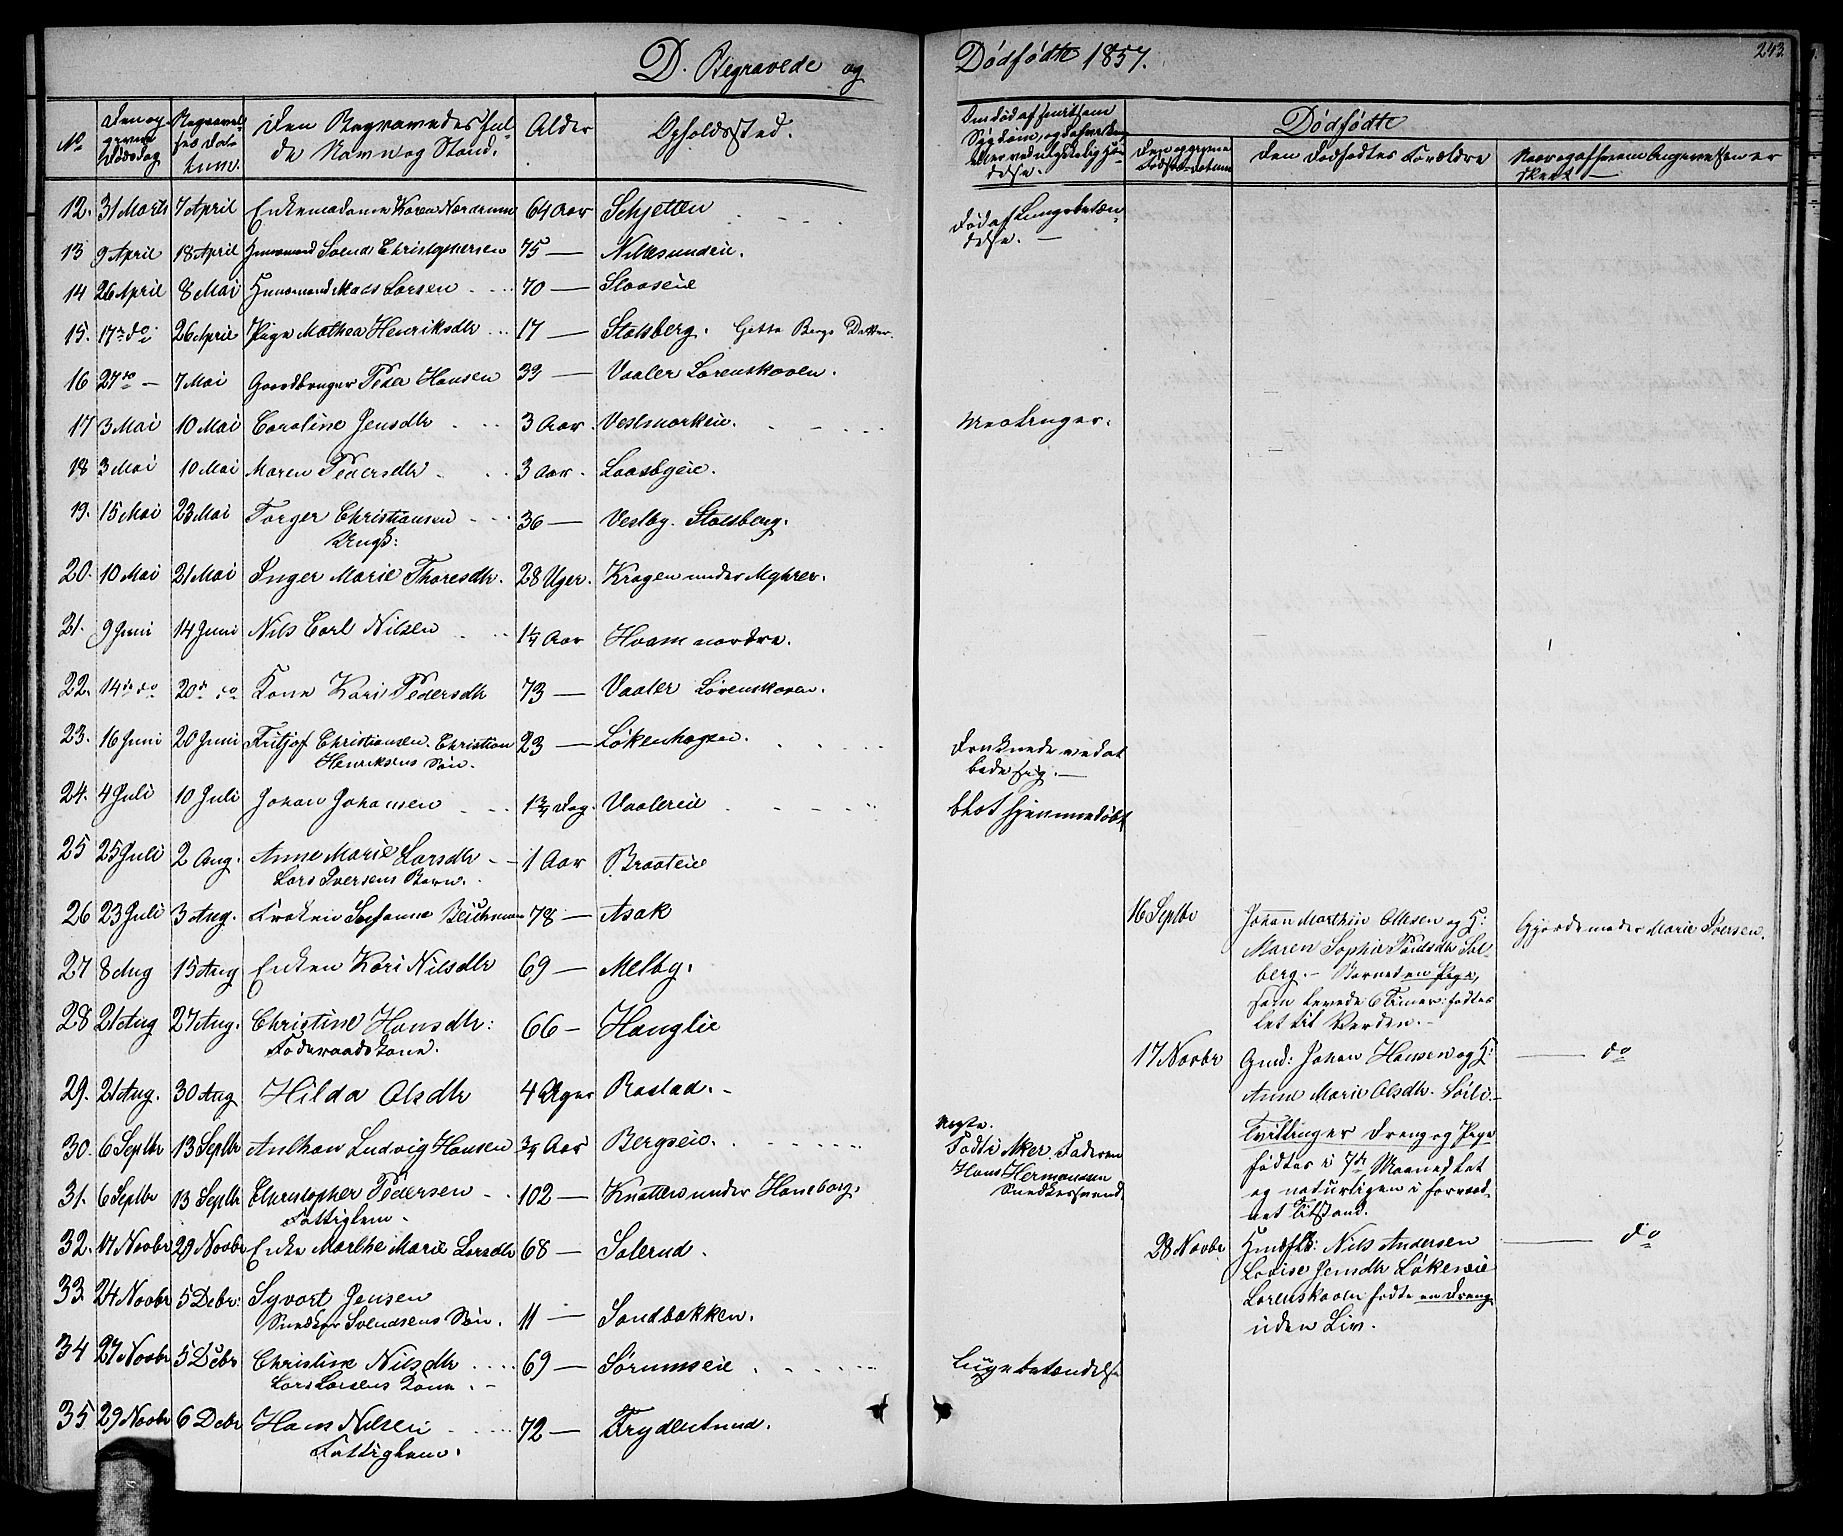 D. Begravede og Dødfødte 1857.
243.
No
Den opgivne Dødsdag
Begravelses Datum.
Den Begravedes fulde Navn og Stand.
Alder
Opholdssted.
Om død af smitsom Sygdom, og da hvilken, eller ved ulykkelig Hændelse.
Dødfødte
Den opgivne Fødselsdatum
Den Dødfødtes Forældre
Naar og af hvem Angivelsen er skeet
12. 31 Marts 7 April Enkemadame Karen Nordrum 64 Aar Schjetten Død af Lungebetændelse. —
13 9 April 18 April Huusmand Svend Christophersen 75 — Nitbesundeie.
14 26 April 8 Mai Huusmand Mads Larsen 70 — Staaseie
15. 17de do 26 April Pige Mathea Henriksdtr 17 — Stalsberg. Gette Bergs Datter.
16 27de — 7 Mai Gaardbruger Peder Hansen 33 — Vaaler Lørenskoven.
17 3 Mai 10 Mai Caroline Jensdtr 3 Aar. Vestmarkeie. Mæslinger.
18 3 Mai 10 Mai Maren Pedersdtr 3 Aar. Laasbyeie.
19. 15 Mai 23 Mai Torger Christiansen 36 — Vestby. Stalsberg.
Ungk:
20. 10 Mai 21 Mai Inger Marie Thoresdtr. 28 Uger. Kragen under Myhrer.
21. 9 Juni 14 Juni Nils Carl Nilsen 1¼ Aar Hvam nordre.
22. 14de do 20de do Kone Kari Pedersdtr 73 — Vaaler Lørenskoven.
23. 16 Juni 20 Juni Fritjof Christiansen. Christian 23 — Løkenhagen. Druknede ved at bade sig. —
Henriksens Søn.
24. 4 Juli 10 Juli Johan Johansen 1¾ Dag. Vaalereie blot hjemmedøbt
25 25 Juli 2 Aug. Anne Marie Larsdtr 1 Aar Braateie
Lars Iversens Barn.
26 23 Juli 3 Aug. Frøken Susanne Beichmann 78 — Asak
27 8 Aug 15 Aug Enken Kari Nilsdtr 69 — Melby.
28 21 Aug 27 Aug. Christine Hansdtr: 66 — Hauglie
Føderaadskone.
29. 21 Aug. 30 Aug Hilda Olsdtr 4 Uger Rastad. —
30. 6 Septbr 13 Septbr Anthon Ludvig Hansen ¾ Aar Bergseie. Uægte. Født i Aker. Faderen Hans Hermansen Snedkersvend
31. 6 Septbr 13 Septbr Christopher Pedersen 102 — Knatten under Haneborg.
Fattiglem. —
32. 17 Novbr 29 Novbr Enke Marthe Marie Larsdtr 68 — Solerud.
33. 24 Novbr 5 Debr: Syvort Jensen 11 — Sandbakken.
Snedker Svendsens Søn.
34 27 Novbr 5 Debr Christine Nilsdtr 69 — Sørumseie betændelse
Lars Larsens Kone. —
35 29 Novbr 6 Debr Hans Nilsen 72 — Frydenlund.
Fattiglem.
16 Septbr Johan Marthin Ollesen og H: Gjordemoder Marie Iversen.
Maren Sophie
berg. — Barnet en Pige,
som levede 6 Timer: fødtes
let til Verden. —
17 Novbr Gmd: Johan Hansen og H: — do
Anne Marie Olsdtr. Sørli —
Tvillinger Dreng og Pige
fødtes i 7de Maaned let
og naturligen i forraad-
net Tilstand.
28 Novbr Nils Andersen — do
Lovise Jensdtr Løkeneie
Lørenskoven fødte en Dreng
uden Liv.